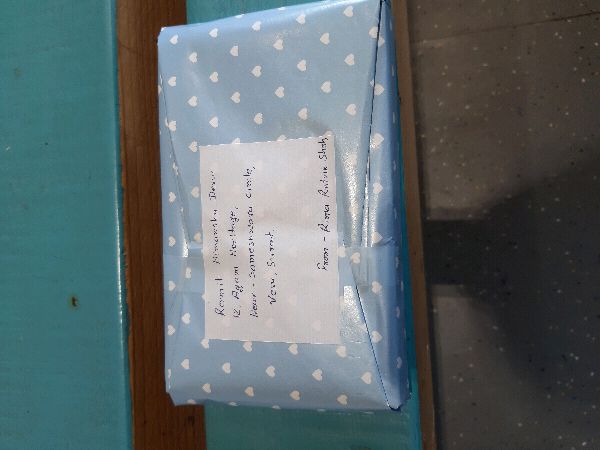 Rormit Himanshu Desai
12, Agam Heritage,
Near - Someshwara Circle,
Vesu, Surat.
From - Rima Shah